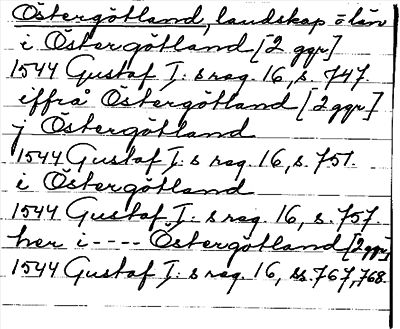 Östergötland, landskap o län
i Östergötland [2 ggr]
1544 Gustaf I:s reg. 16, s. 747.
iffrå Östergötland [2 ggr]
j Östergötland
1544 Gustaf I:s reg. 16, s. 751.
i Östergötland
1544 Gustaf I:s reg. 16, s. 757.
her i - - - - Östergötland [2 ggr]
1544 Gustaf I:s reg. 16, ss. 767, 768.